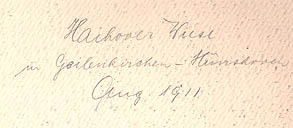 Haihover Wiese
in Geilenkirchen - Hünshoven
Aug. 1911